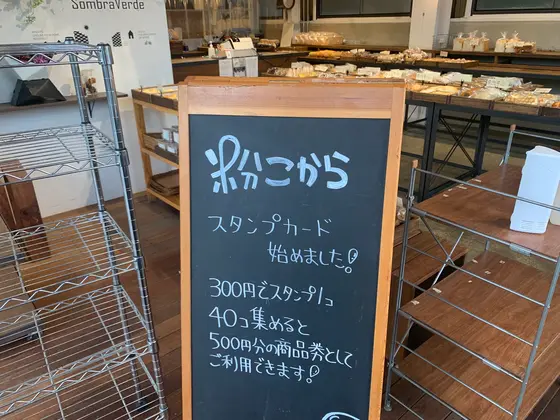 SombraVerde
粉こから
スタンプカード
始めました!
300円でスタンプ1コ
40コ集めると
500円分の商品券として
ご利用できます!